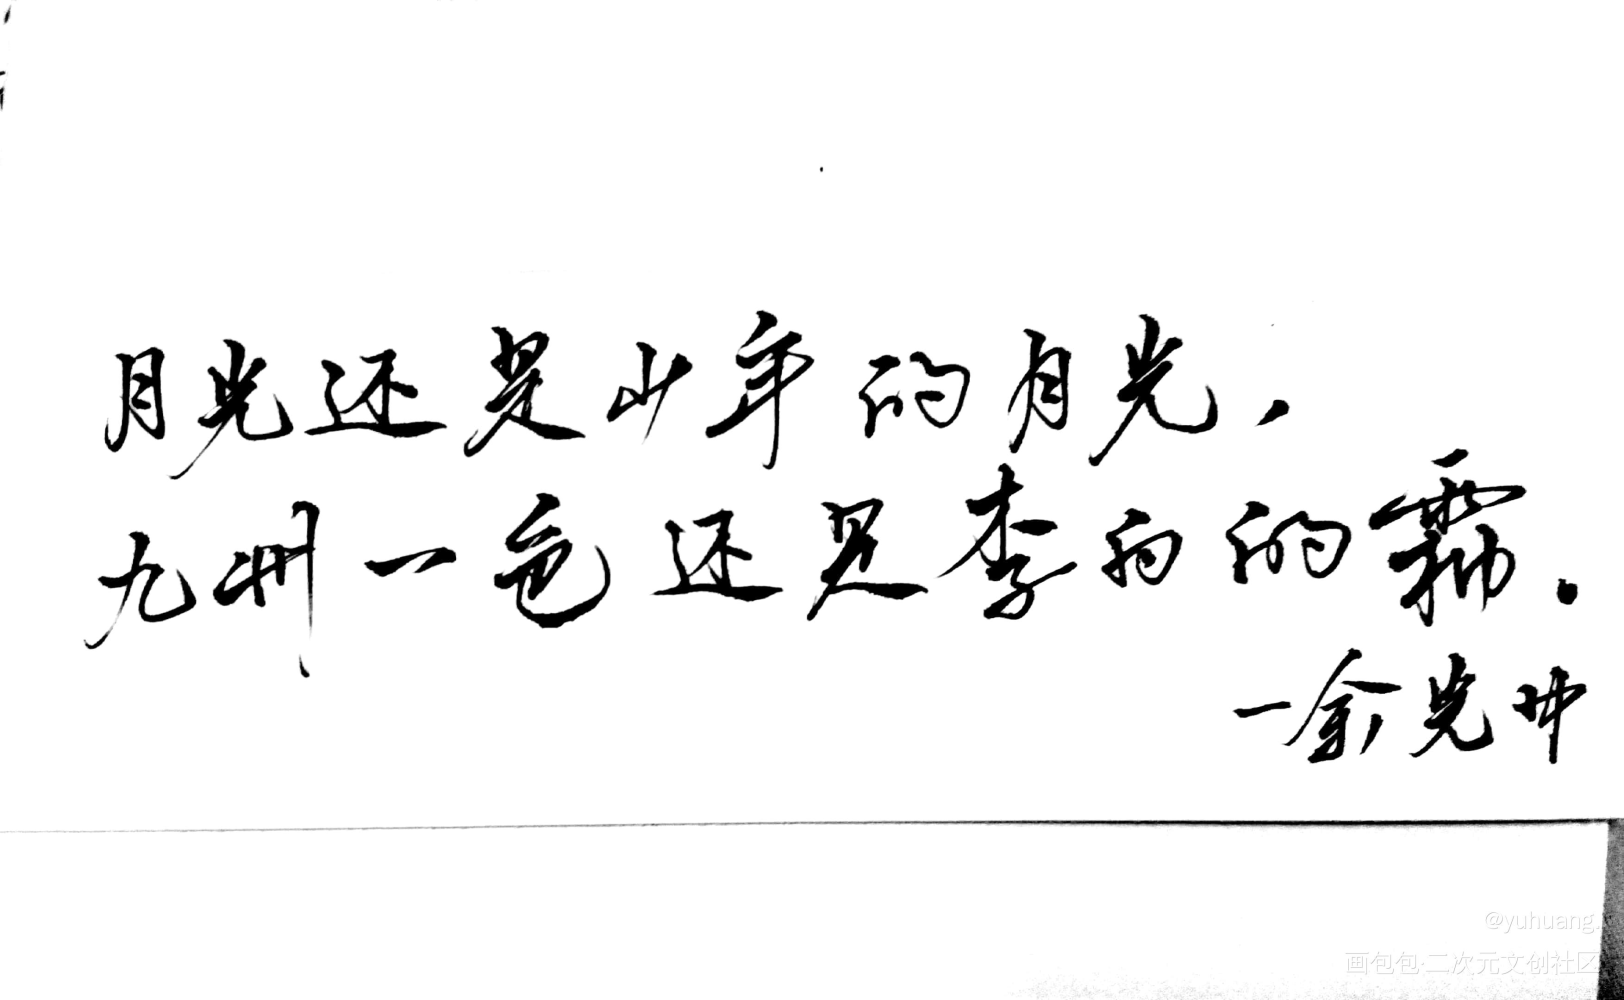 月光还是少年的月光，
九州一色还是李白的霜。
一余光中
@yuhuang.
画包包·二次元文创社区